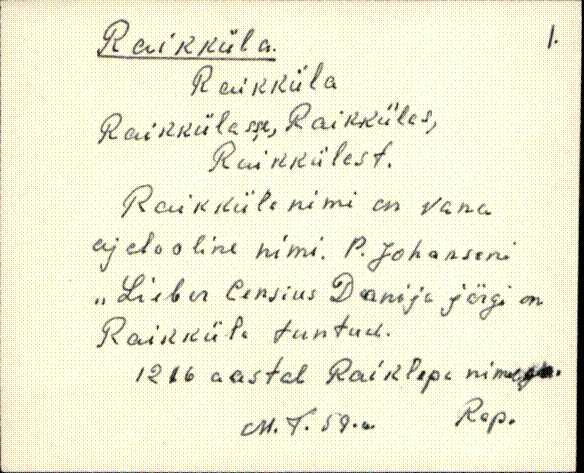 1.
Raikküla.
Raikküla
Raikkülasse, Raikkülas,
Raikkülast.
Raikküla nimi on vana
ajalooline nimi. P. Johanseni
„Lieber Censius Danija järgi on
Raikküla tuntud.
1216 aastal Raiklepe nimega.
M. T. 59.a. Rap.